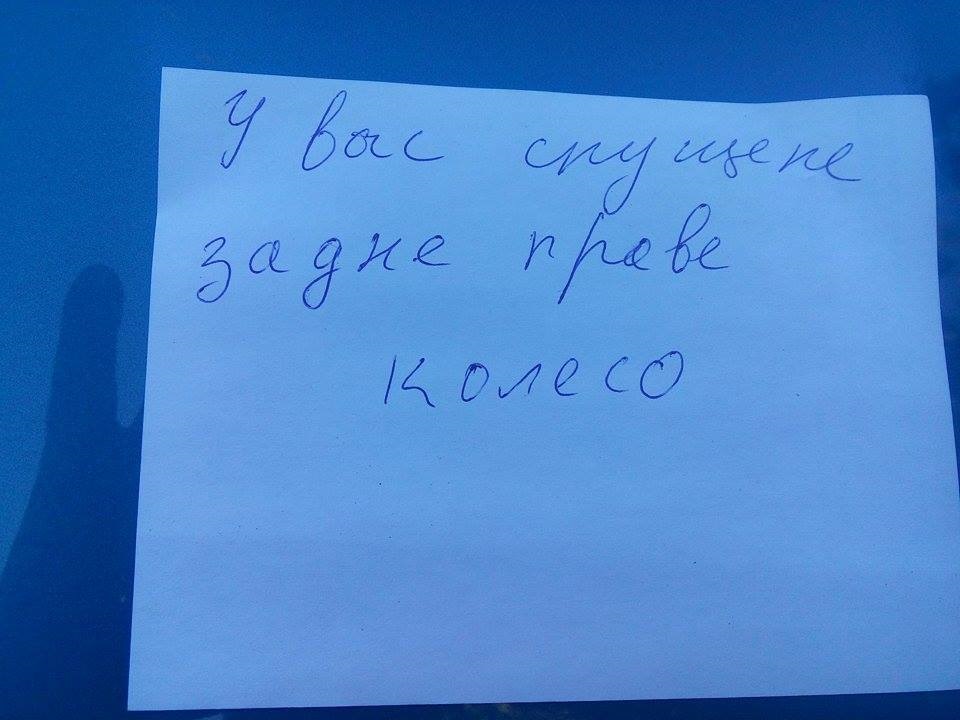 У вас спущене
задне праве
колесо